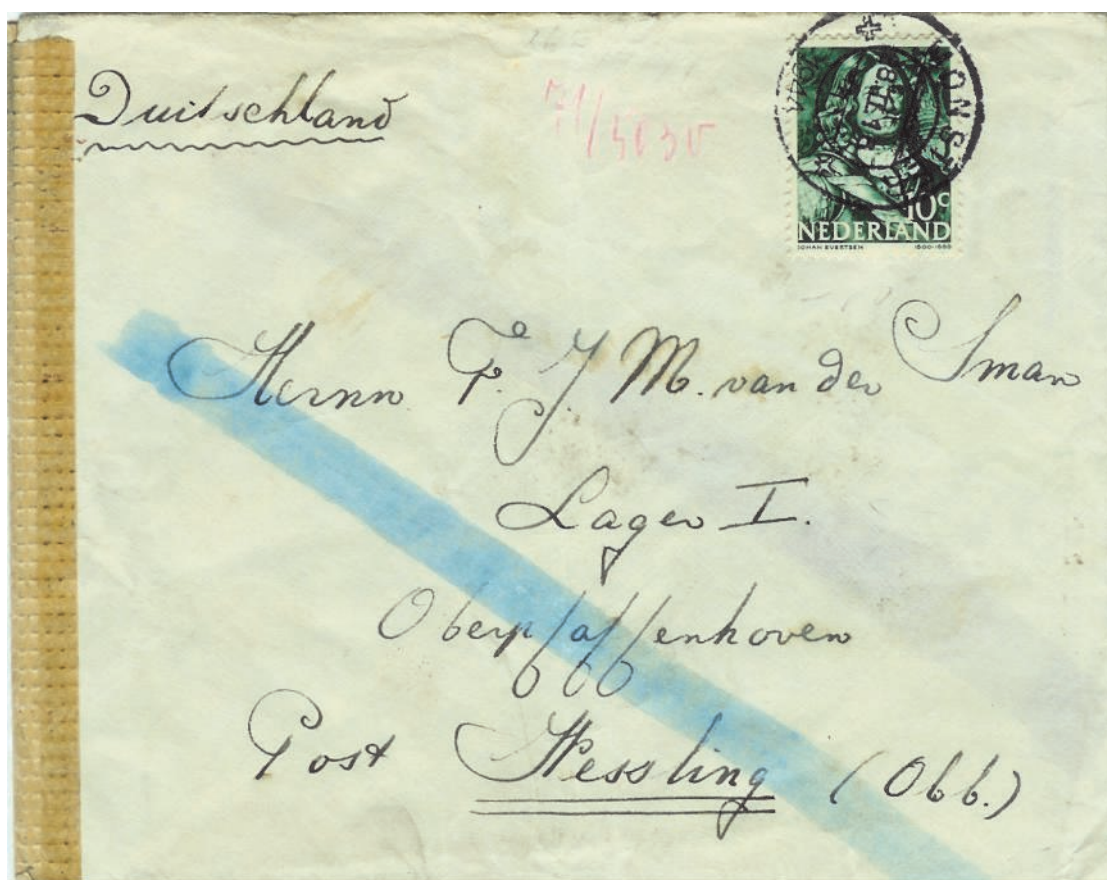 Duitschland
MONSTER
10c
NEDERLAND
JOHAN EVERTSEN 1600-1666
Herrn F. J. M. van der Sman
Lager I.
Oberpfaffenhoven
Post Wessling (Obb.)